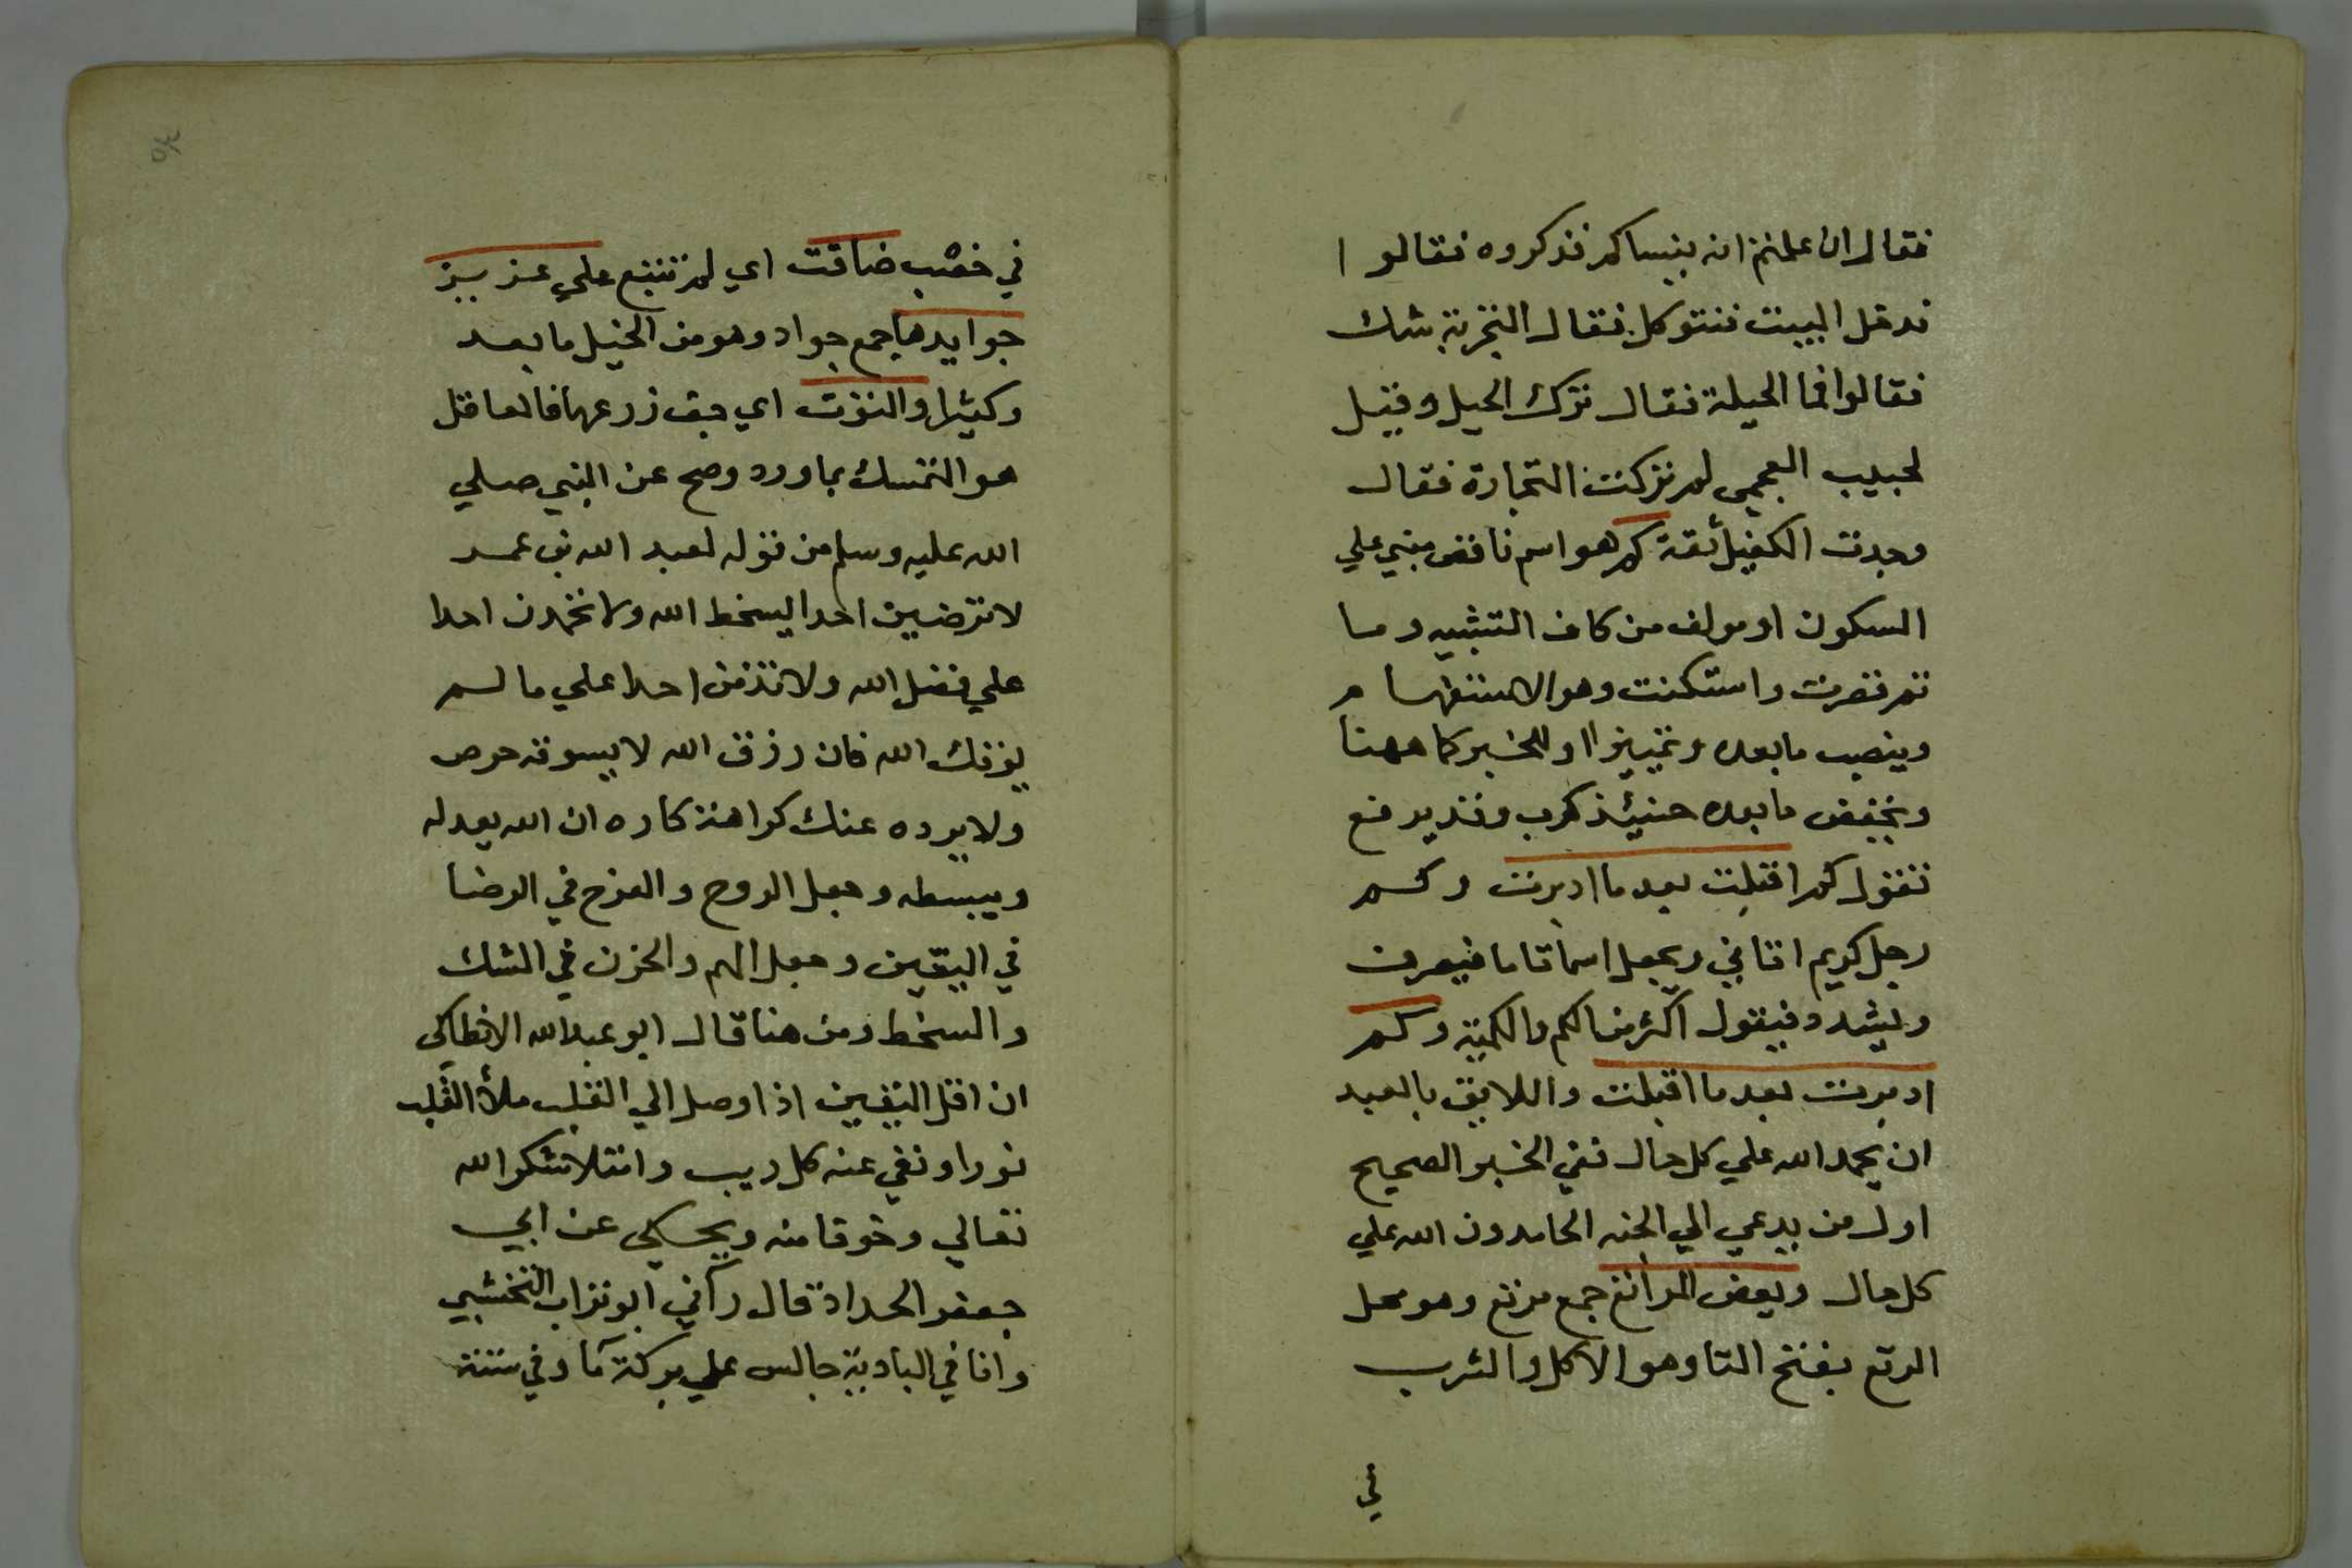 فقال ان علمتم انه ينساكم فذكروه فقالوا
ندخل البيت فنتوكل فقال التجربة شك
فقالوا فما الحيلة فقال ترك الحيل وقيل
لحبيب العجمي لم تركت التجارة فقال
وجدت الكفيل ثقة كم هو اسم ناقص مبني علي
السكون او مولف من كاف التشبيه وما
ثم قصرت واسكنت وهو الاستفهام
وينصب ما بعده تمييزا او للخبر كما ههنا
ويخفض ما بعده حنيئذ كرب وقد يرفع
تقول كم اقبلت بعد ما ادبرت وكم
رجل كريم اتاني ويجعل اسما تاما فيصرف
ويشدد فيقول اكثر من الكم والكمية وكم
ادبرت بعد ما اقبلت واللايق بالعبد
ان يحمد الله علي كل حال ففي الخبر الصحيح
اول من يدعي الي الجنه الحامدون الله علي
كل حال وبعض المراتع جمع مرتع وهو محل
الرتع بفتح التا وهو الاكل والشرب
في
٣٥
في خصب ضاقت اي لم تتبع علي عزيز
جوايدها جمع جواد وهو من الخيل ما يعد
وكثيرا والنوت اي جف زرعها فالعاقل
هو التمسك بما ورد وصح عن النبي صلي
الله عليه وسلم من قوله لعبد الله بن عمر
لا ترضين احدا بسخط الله ولا تحمدن احدا
علي فضل الله ولا تذمن احدا علي ما لم
يؤتك الله فان رزق الله لا يسوقه حرص
ولا يرده عنك كراهة كاره ان الله بعدله
وببسطه جعل الروح والفرح في الرضا
في اليقين وجعل الهم والحزن في الشك
والسخط ومن هنا قال ابو عبدالله الانطاكي
ان اقل اليقين اذا وصل الي القلب ملأ القلب
نورا ونفي عنه كل ريب وامتلا شكرا لله
تعالي وخوفا منه ويحكي عن ابي
جعفر الحداد قال رآني ابو تراب النخشبي
وانا في البادية جالس علي بركة مآ وفي ستة